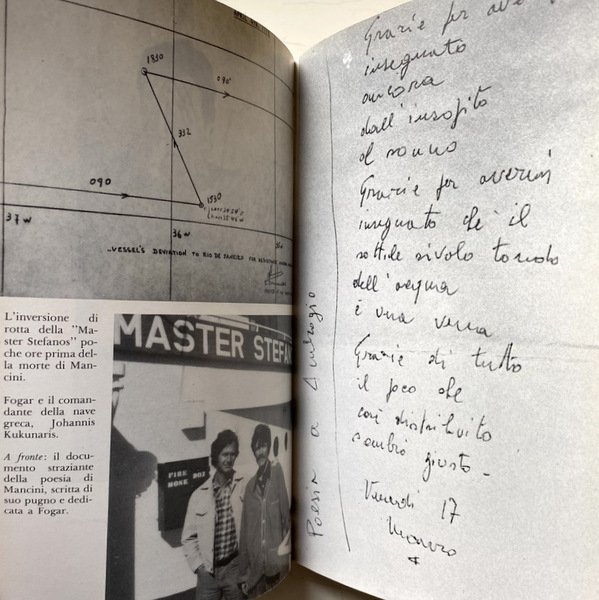 1830
090°
332
090
1530
37 W
36 W
VESSEL'S DEVIATION TO RIO DE JANEIRO FOR
L'inversione di
rotta della "Ma-
ster Stefanos" po-
che ore prima del-
la morte di Man-
cini.
Fogar e il coman-
dante della nave
greca, Johannis
Kukunaris.
A fronte: il docu-
mento straziante
della poesia di
Mancini, scritta di
suo pugno e dedi-
cata a Fogar.
MASTER STEFAN
FIRE
HOSE
Poesia a Ambrogio
Grazie per ave
insegnato
ancora
dall'insolito
il
Grazie per avermi
insegnato che il
sottile rivolo tondo
dell'acqua
è una vena
Grazie di tutto
il poco che
così distribuito
sembrò giusto -
Venerdì 17
Mauro